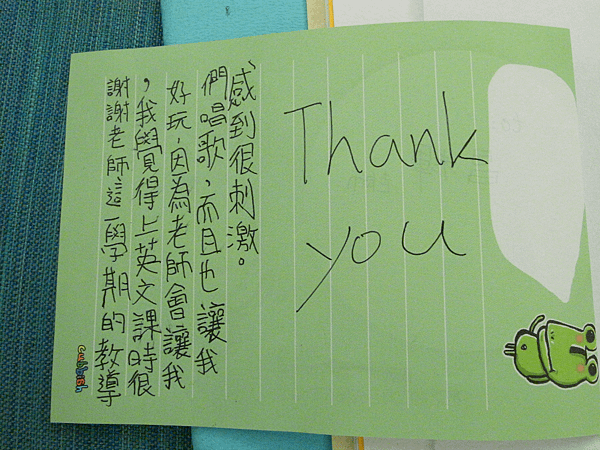 謝謝老師這一學期的教導
，我覺得上英文課時很
好玩，因為老師會讓我
們唱歌，而且也讓我
感到很刺激。
Thank
you
cubbish